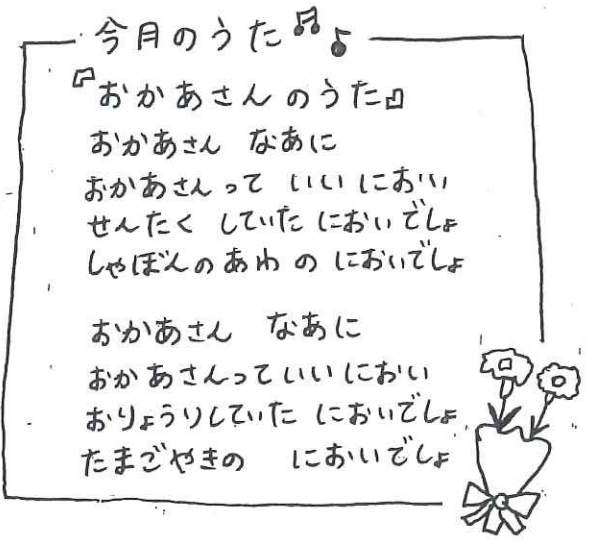 今月のうた
『おかあさんのうた』
おかあさん なあに
おかあさんって いいにおい
せんたく していた においでしょ
しゃぼんのあわの においでしょ
おかあさん なあに
おかあさんっていいにおい
おりょうりしていた においでしょ
たまごやきの においでしょ